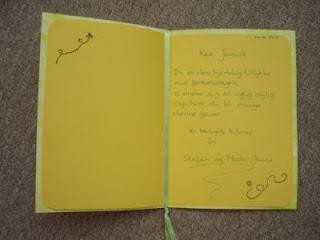 Kære Jannick
Du ønskes hjertelig tillykke
med fødselsdagen.
Vi ønsker dig en rigtig dejlig
dag hvor du får mange
skønne gaver.
de kærligste hilsner
fra
Stefan og Moster Janni